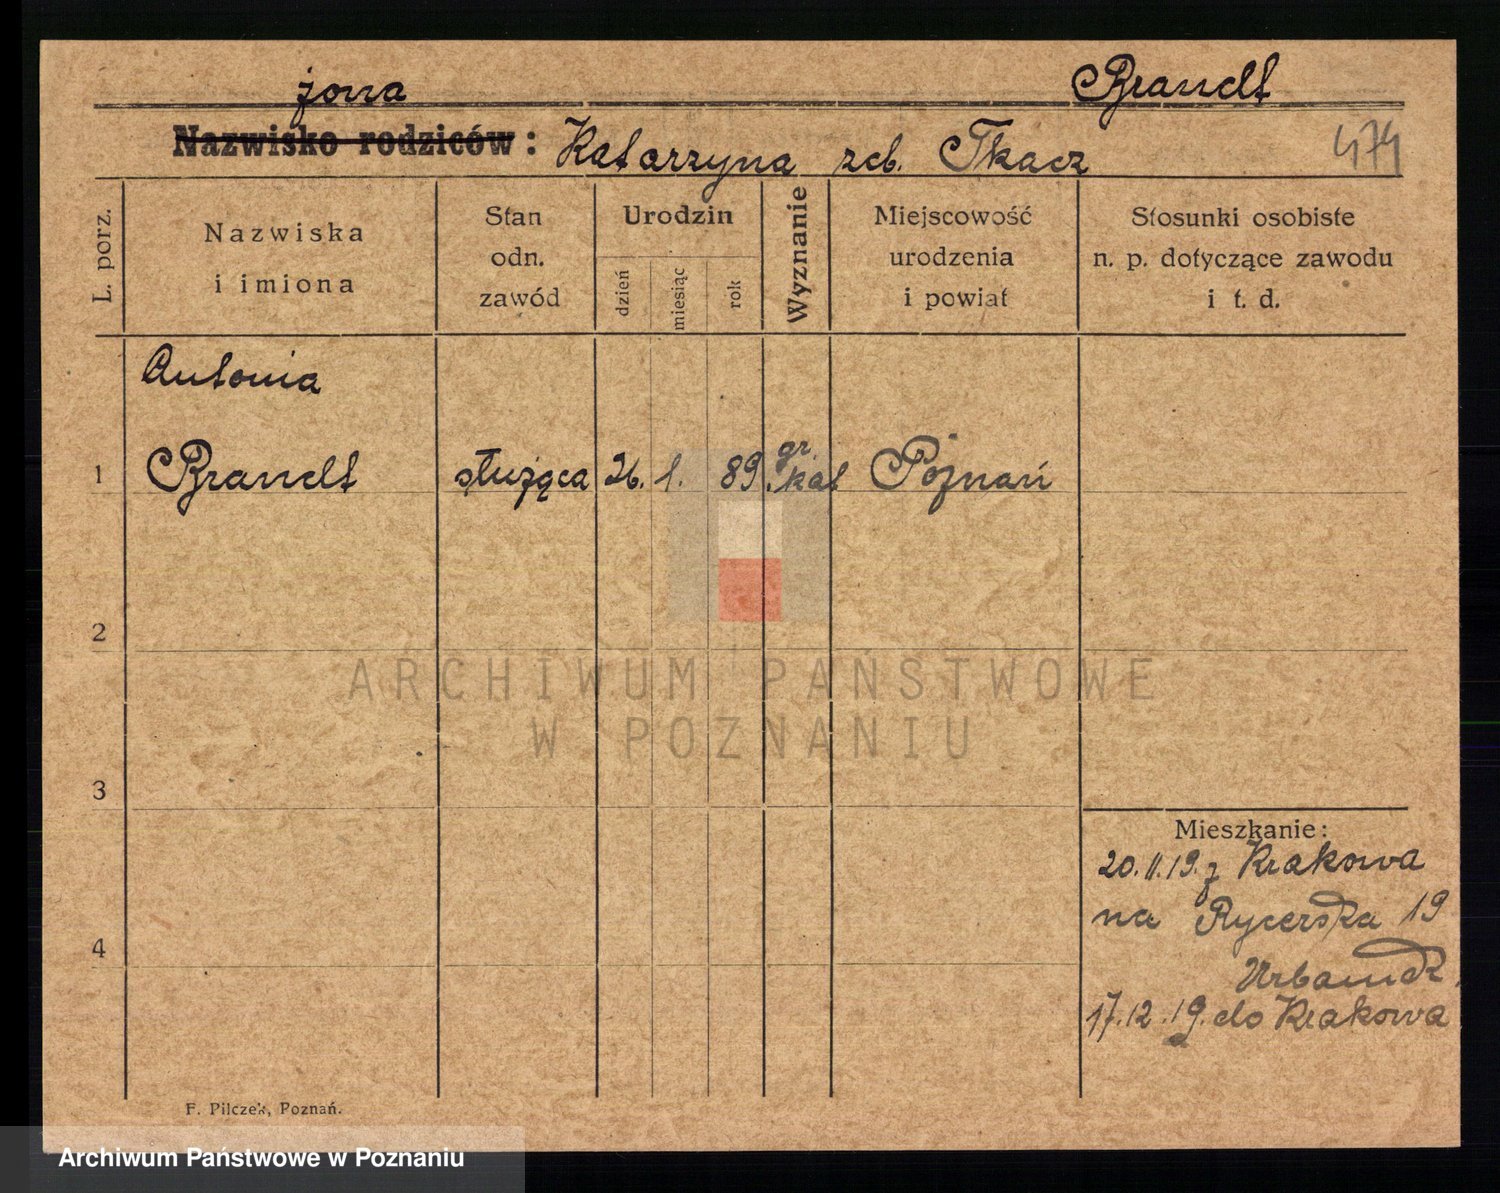 żona Brandt
Nazwisko rodziców: Katarzyna zeb. Tkacz 474
L. porz.
Nazwiska
i imiona
Stan
odn.
zawód
Urodzin
dzień
miesiąc
rok
Wyznanie
Miejscowość
urodzenia
i powiat
Stosunki osobiste
n. p. dotyczące zawodu
i t. d.
Antonia
1 Brandt służąca 26. 1. 89 gr. kat Poznań
2
ARCHIWUM PAŃSTWOWE
W POZNANIU
3
Mieszkanie:
20. II. 19. z Krakowa
na Rycerska 19
4
17. 12. 19. do Krakowa
F. Pilczek, Poznań.
Archiwum Państwowe w Poznaniu